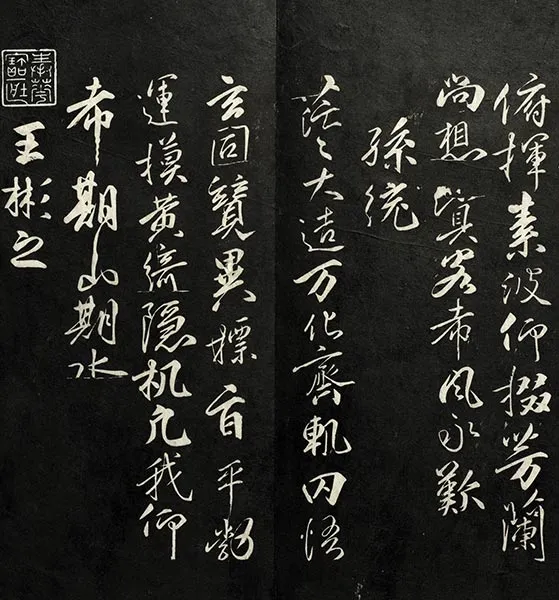 俯揮素波仰掇芳蘭
尚想客希風永歎
孫統
茫〻大造万化齊軌罔悟
玄同競異摽旨平勃
運摸黃綺隱机凡我仰
希期山期水
王彬之